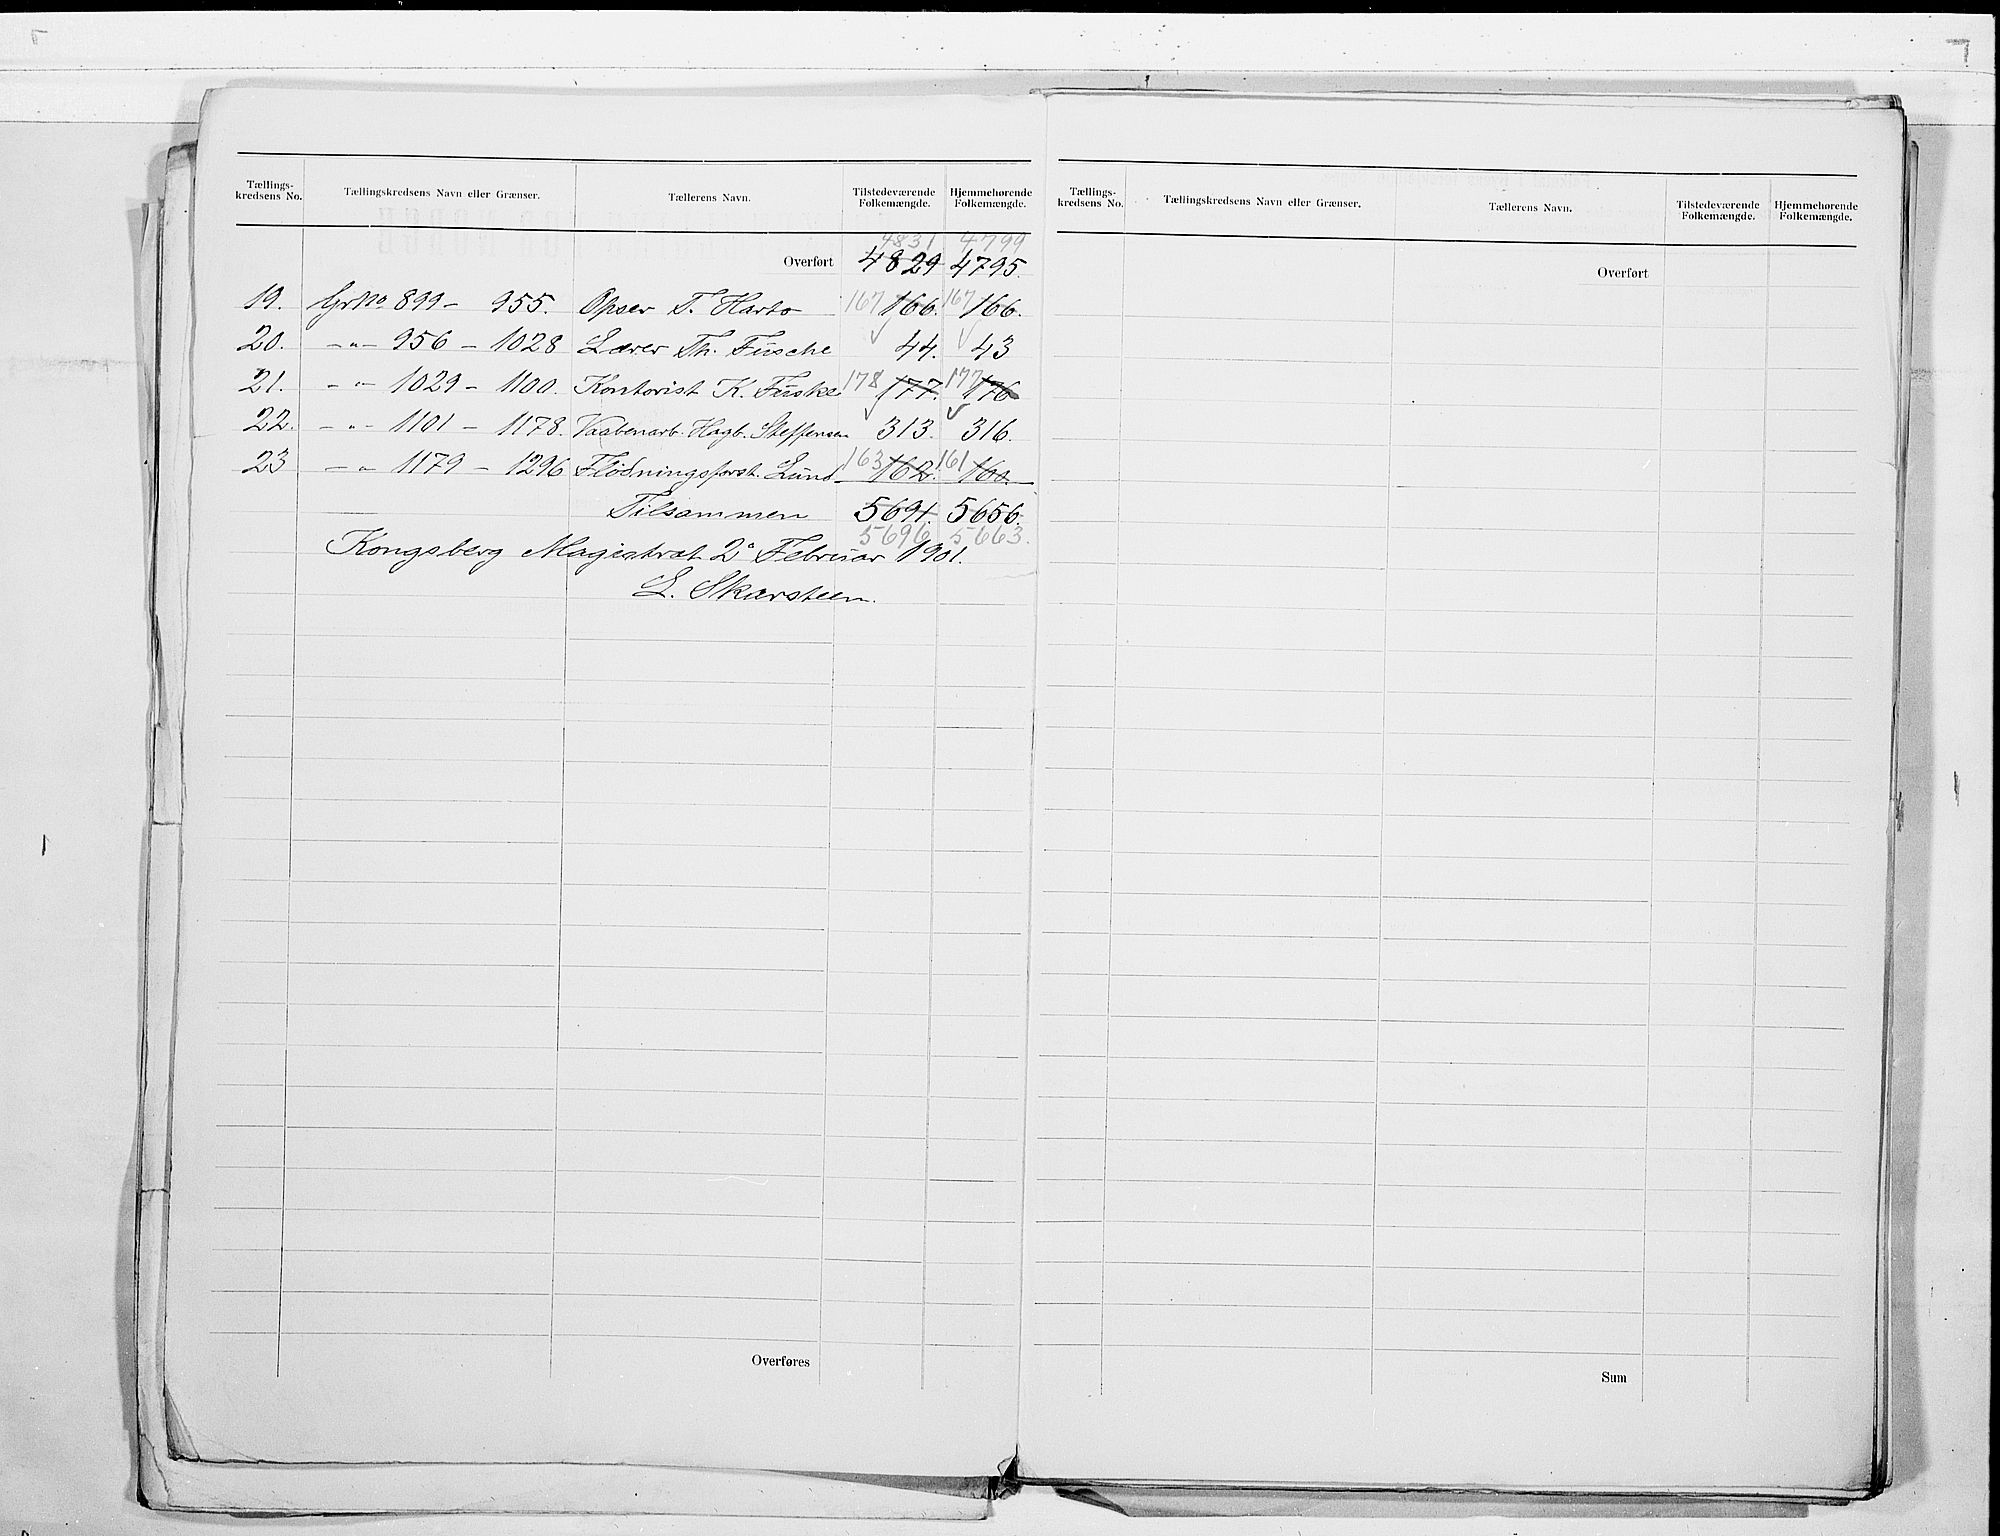 Tællings-
kredsens No.
Tællingskredsens Navn eller Grænser.
Tællerens Navn.
Tilstedeværende
Folkemængde.
Hjemmehørende
Folkemængde.
4831 4799
Overført 4829 4795.
19. Gr No 899 - 955. Opser T. Harto 167 166. 167 166.
20. -"- 956 - 1028 Lærer Th. Fusche 44. 43
21. -"- 1029 - 1100. Kontorist K. Fuske 178 177. 177 176
22. -"- 1101 - 1178. Vaabenarb. Hagb. Steffensen 313. 316.
23 -"- 1179 - 1296 Flödningsforst. Lund 163 162. 161 160.
Tilsammen 5691. 5656.
5696 5663.
Kongsberg Magistrat 2 Februar 1901.
L. Skarsteen.
Overføres
Tællings-
kredsens No.
Tællingskredsens Navn eller Grænser.
Tællerens Navn.
Tilstedeværende
Folkemængde.
Hjemmehørende
Folkemængde.
Overført
Sum